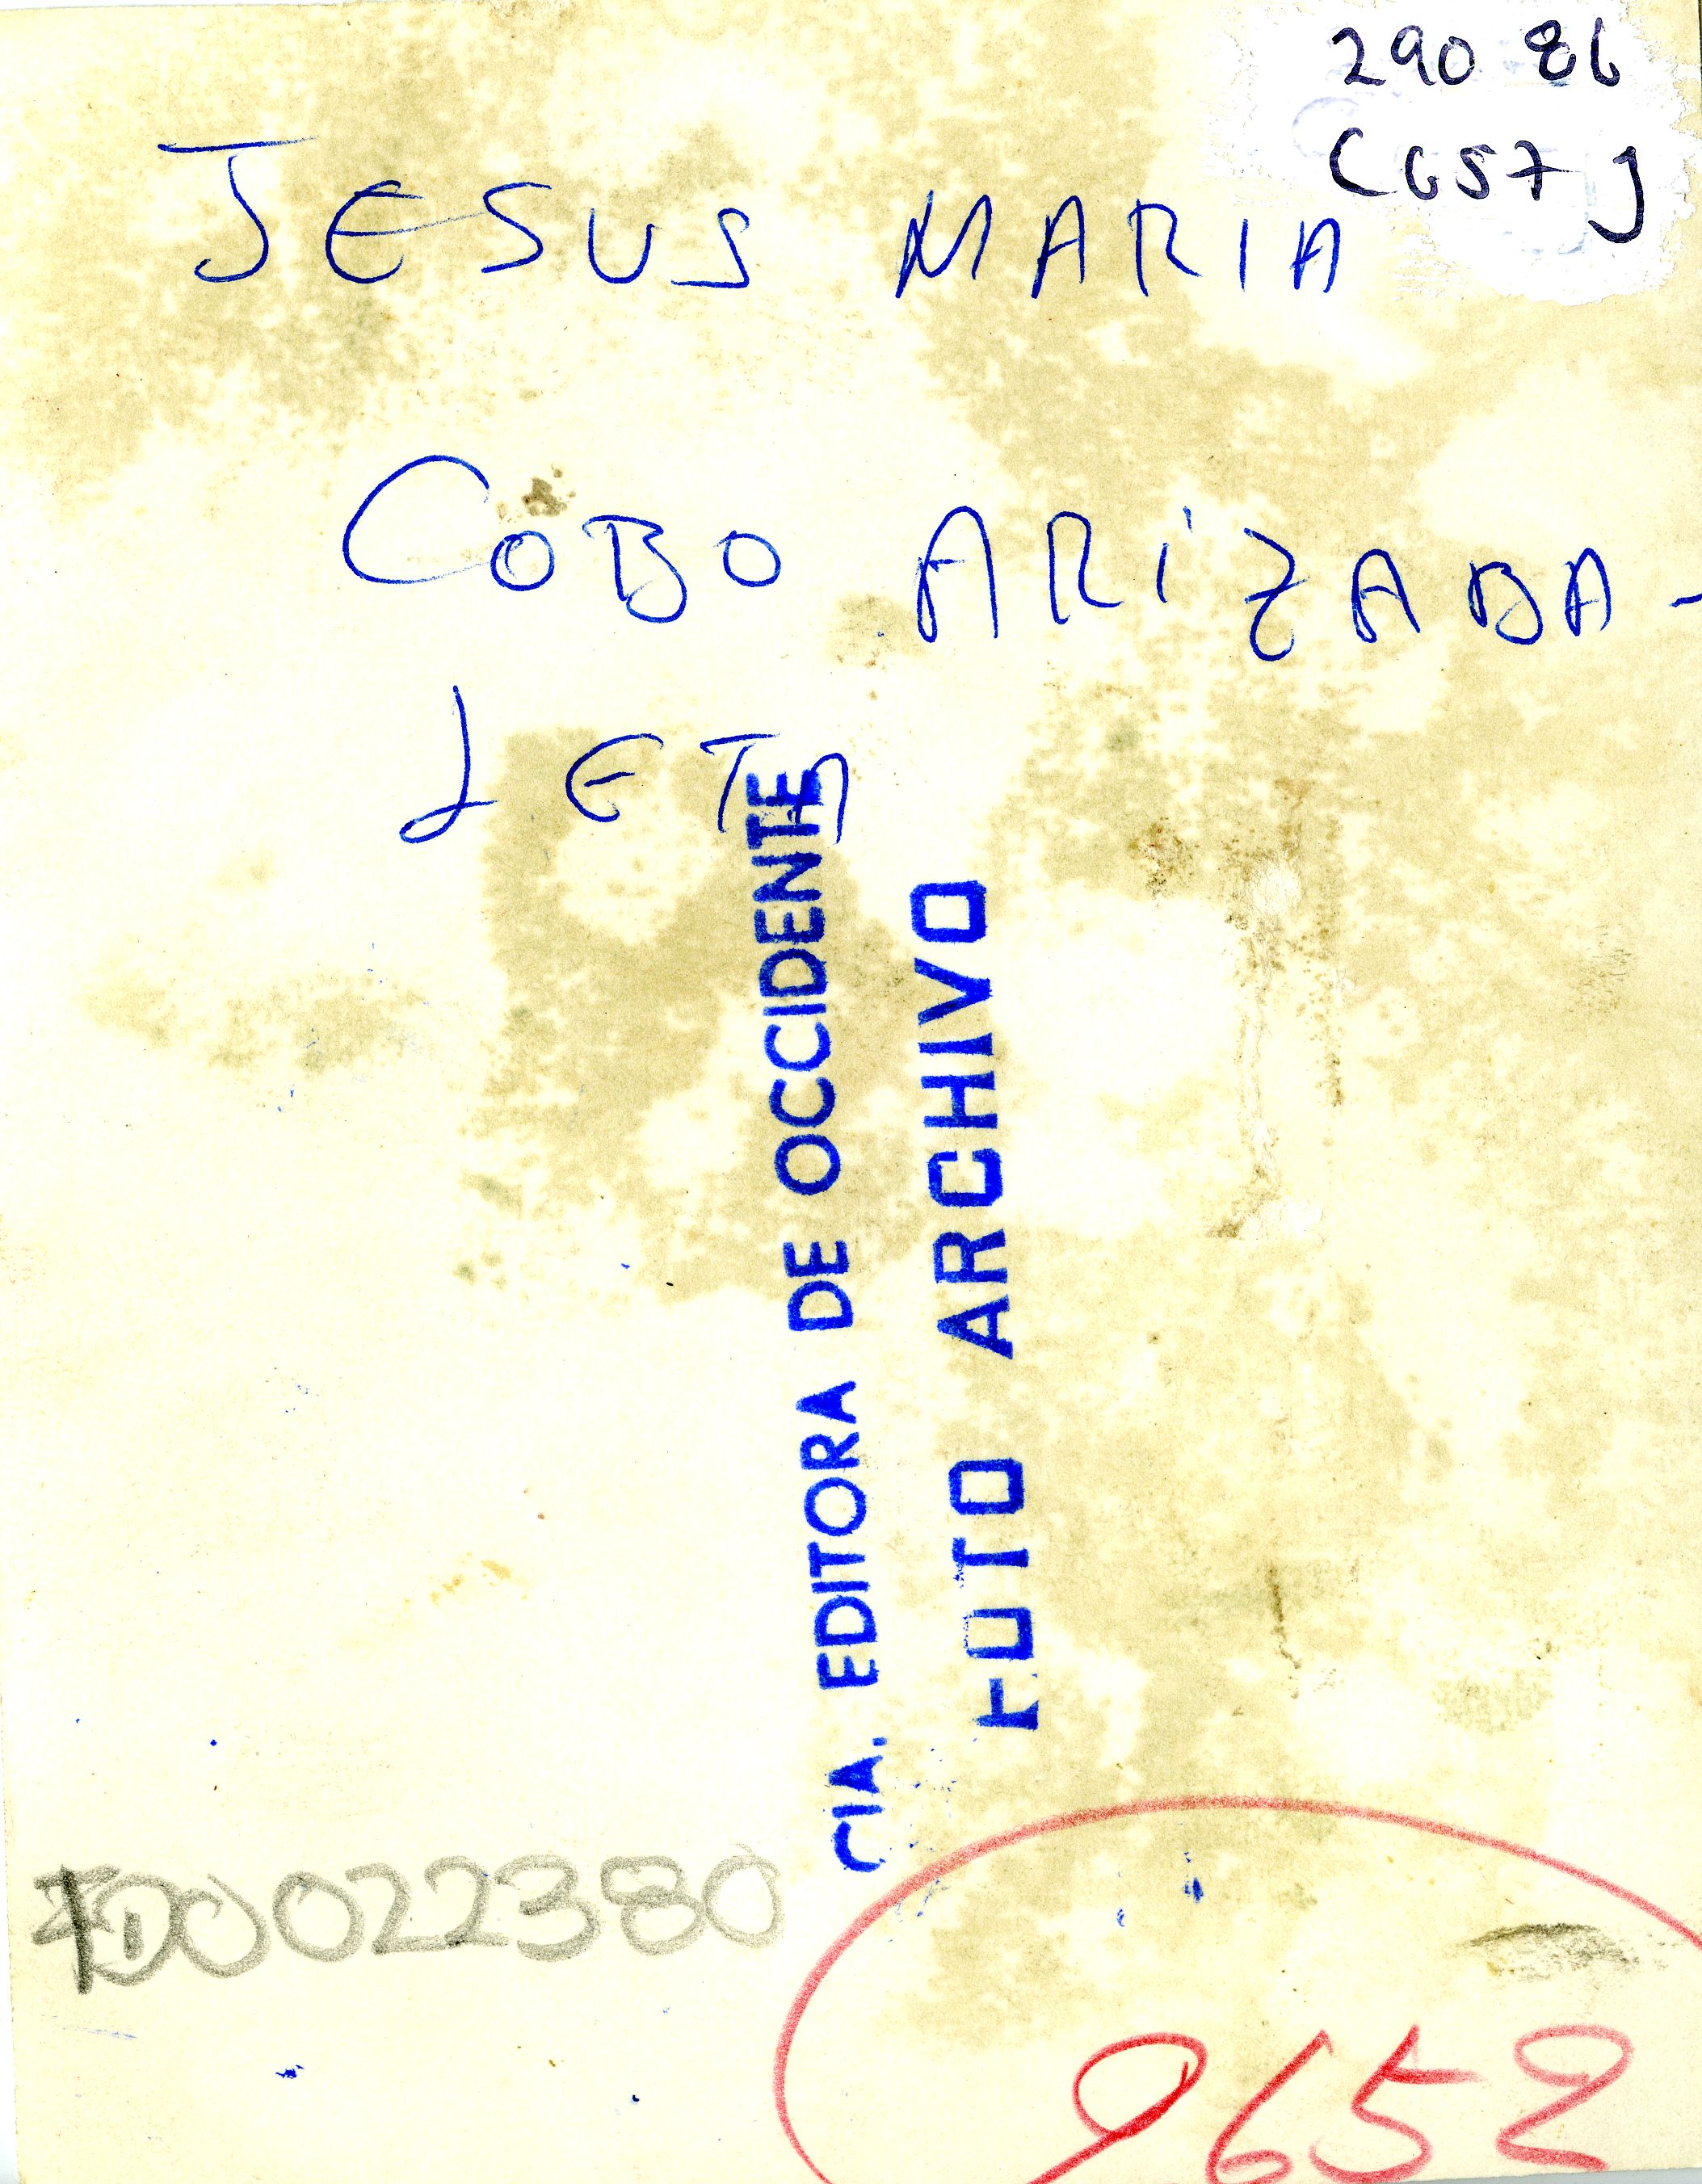 290 86
C657 J
JESUS MARIA
COBO ARIZABA-
LETA
CIA. EDITORA DE OCCIDENTE
FOTO ARCHIVO
0022380
9652